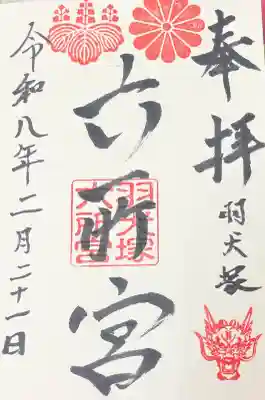 奉拝
羽犬塚
六所宮
羽犬塚
六所宮
令和八年二月二十一日